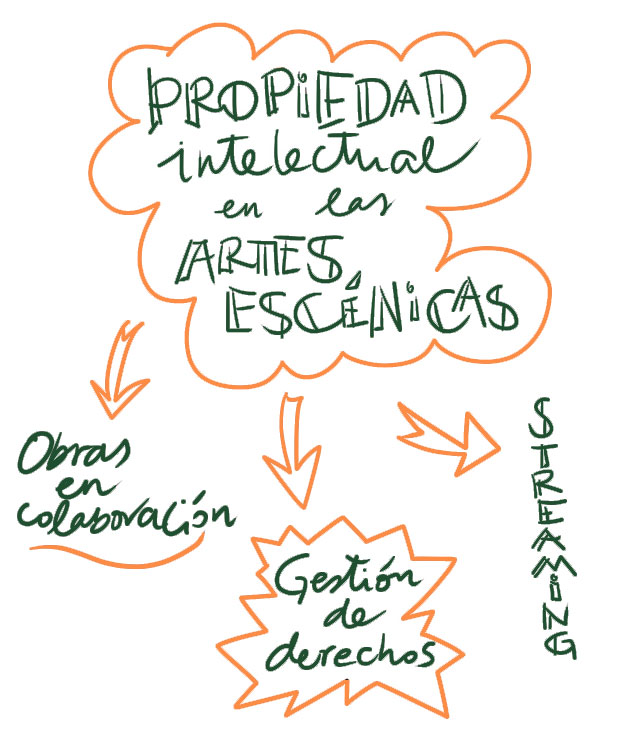 PROPIEDAD
intelectual
en las
ARTES
ESCÉNICAS
Obras
en
colaboración
Gestión
de
derechos
STREAMING